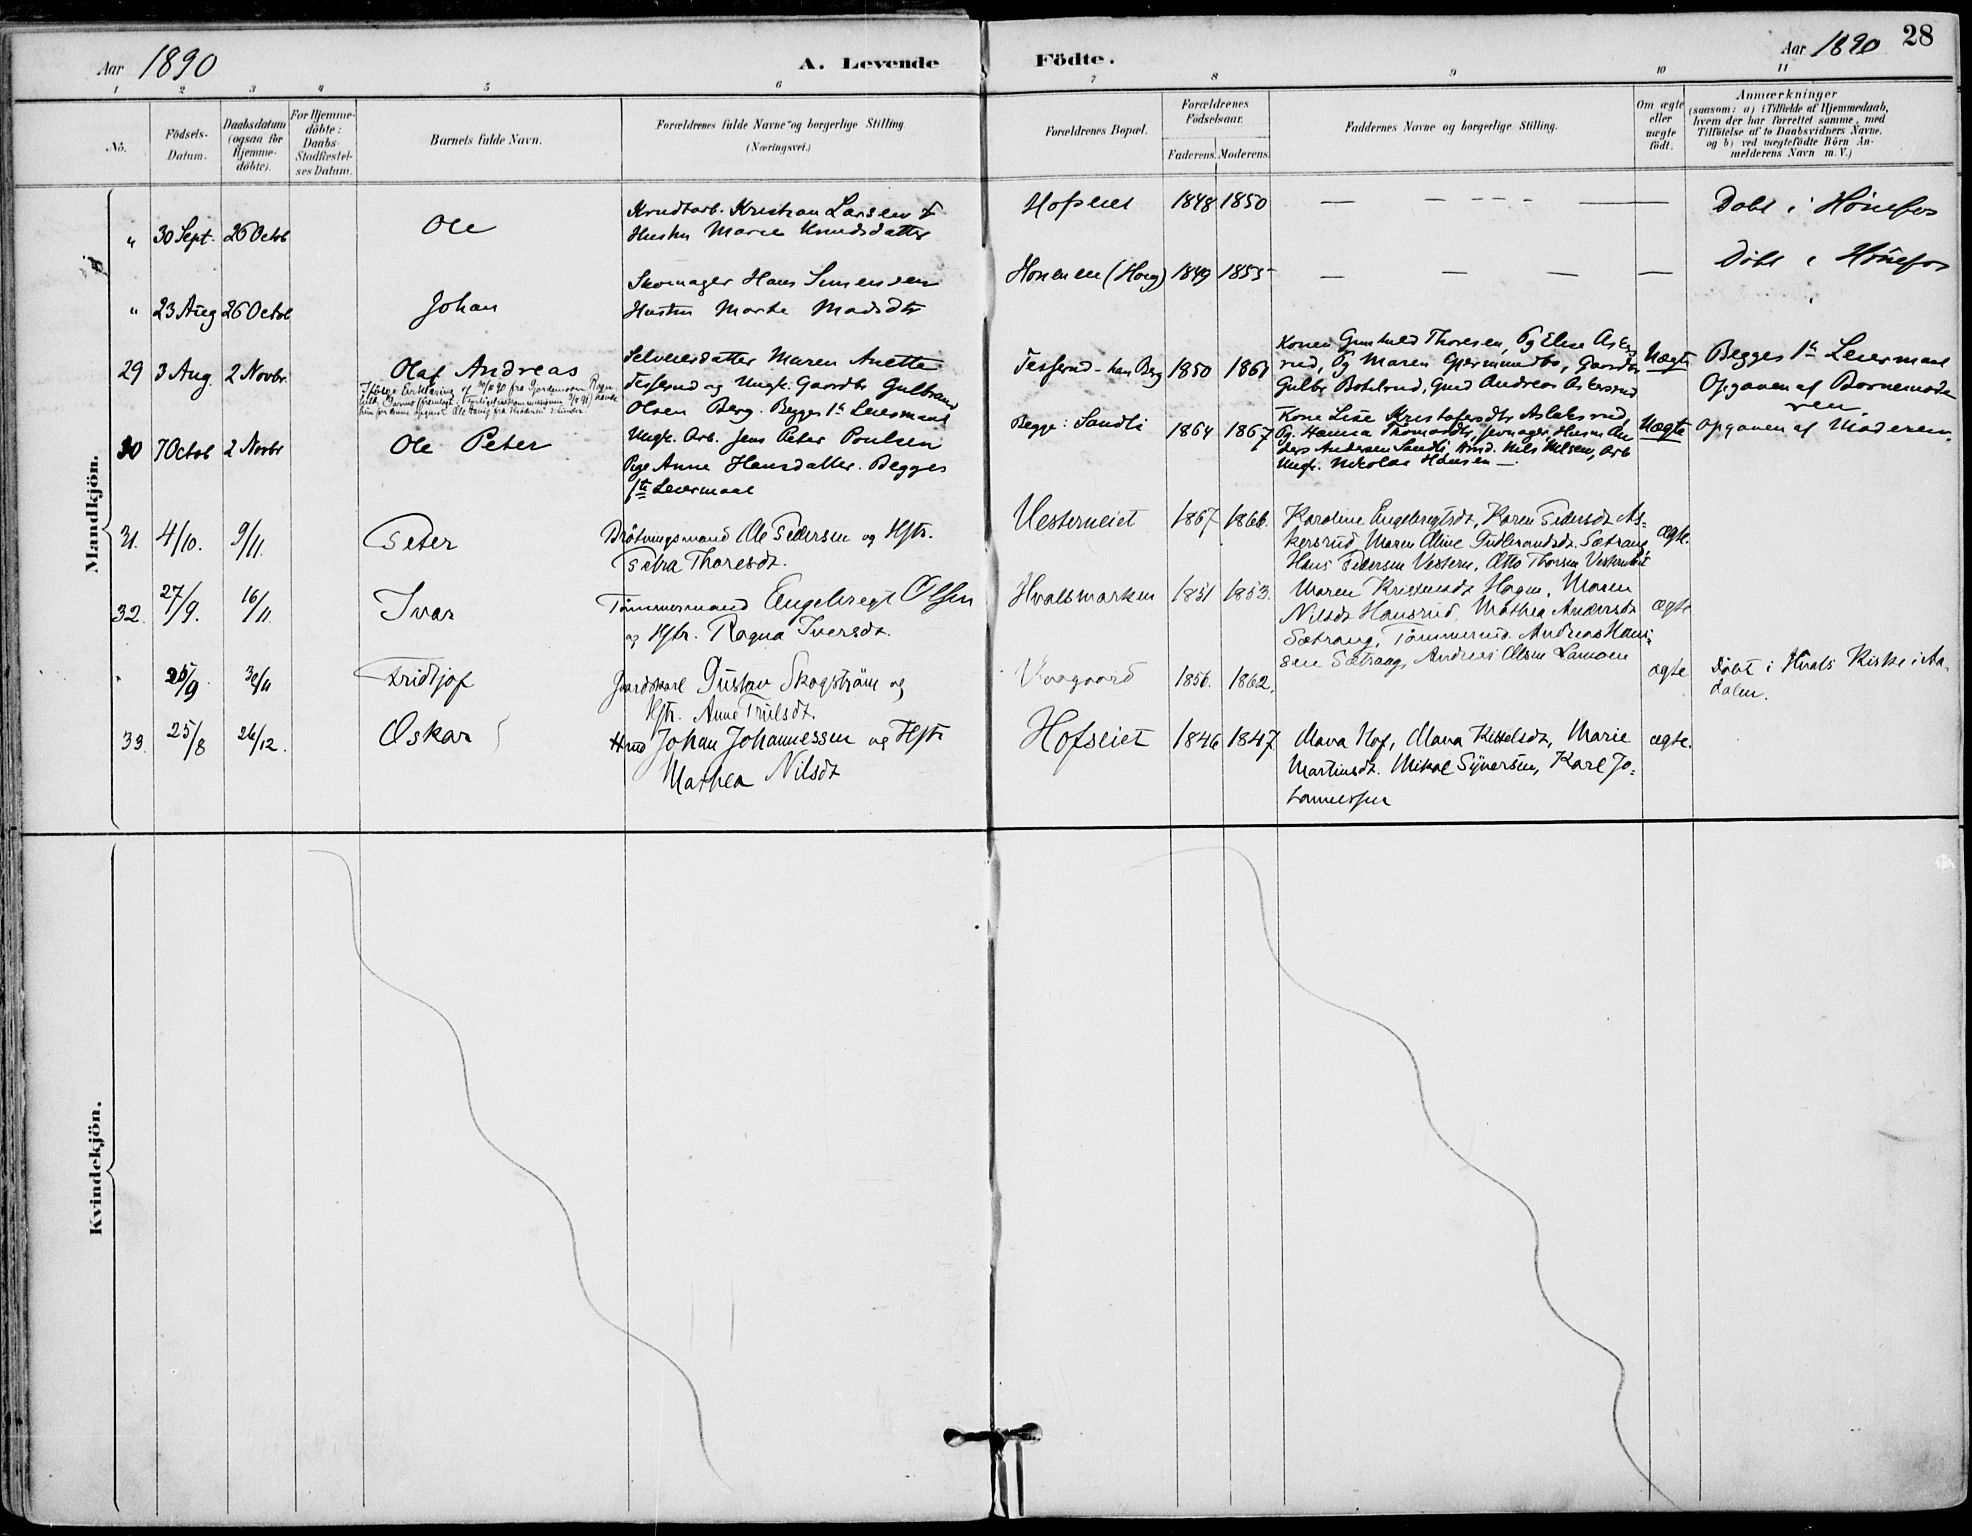 28
Aar 1890 A. Levende Födte. Aar 1890
1 2 3 4 5 6 7 8 9 10 11
No.
Födsels-
Datum.
Daabsdatum
(ogsaa for
Hjemme-
döbte).
For Hjemme-
döbte:
Daabs-
Stadfæstel-
ses Datum.
Barnets fulde Navn.
Forældrenes fulde Navne og borgerlige Stilling.
(Næringsvei.)
Forældrenes Bopæl.
Forældrenes
Födselsaar.
Faderens. Moderens.
Faddernes Navne og borgerlige Stilling.
Om ægte
eller
uægte
født.
Anmærkninger
(saasom: a) i Tilfælde af Hjemmedaab,
hvem der har forrettet samme, med
Tilföielse af to Daabsvidners Navne.
og b) ved uægtefödte Börn An-
melderens Navn m. V.)
Mandkjön.
" 30 Sept. 26 Octob
Ole
Kristian Larsen &
Hustru Marie Knudsdatter
Hofseiet 1848 1850
— — — — — —
Døbt i Hønefos
" 23 Aug 26 Octob
Johan
Skomager Hans Simensen
Hustru Marte Madsdtr
Honeneie (Hoeg) 1849 1855
— — — —
Døbt i Hønefos
29 3 Aug. 2 Novbr.
Olaf Andreas
Selveiersdatter Maren Anette
Tesserud og Ungk. Gaardbr Gulbrand
Olsen Berg. Begges 1ste Leiermaal
Tesserud - han Berg 1850 1861
Konen Gunhild Thoresen, Pg Eline Askers
rud, Pg Maren Gjermundbo, Gaardbr
Gulbr Bobelrud, Gmd Andreas Askersrud
Uægte
Begges 1ste Leiermaal
Opgaven af Barnemode
ren
30 7 Octob 2 Novbr
Ole Peter
Ungk. Arb. Jens Peter Poulsen
Pige Anne Hansdatter. Begges
1ste Leiermaal
Begge: Sandli 1864 1867
Kone Lise Kristofersdtr Aslaksrud,
Pg. Hanna Thomasdtr, Husm An
ders Andersen Sandli, Nils Nilsen, Arb
Ungk. Nikolai Hansen —
Uægte
Opgaven af Moderen.
31. 4/10. 9/11.
Peter
Brøtningsmand Ole Pedersen og Hstr.
Petra Thoresdt.
Vesterneiet 1867 1866.
Karoline Engebregtsdt, Karen Pedersdt As-
kersrud Maren Oline Gulbrandsdt. Sætrang,
Hans Pedersen Vestern, Otto Thorsen Vesterneiet
ægte.
32. 27/9. 16/11
Ivar
Tømmermand Engebregt Olsen
og Hstr. Ragna Iversdt.
Hvalsmarken 1851 1853.
Maren Kristiansdt Hagen, Maren
Nilsdt Hansrud, Mathea Andersdt
Sætrang, Tømmermd. Andreas Han-
sen Sætrang, Andreas Olsen Lamoen
ægte
" 25/9 30/11
Fridtjof
Gaardskarl Gustav Skogstrøm og
Hstr. Anne Trulsdt.
Vaagaard 1856. 1862.
ægte
Døbt i Hvals Kirke i Aa-
dalen.
33. 25/8 26/12.
Oskar
Hmd Johan Johannessen og Hstr
Mathea Nilsdt
Hofseiet 1846 1847
Mava Hof, Mava Kittelsdt, Marie
Martinsdt. Mikal Syversen, Karl Jo-
hannessen
ægte.
Kvindekjön.